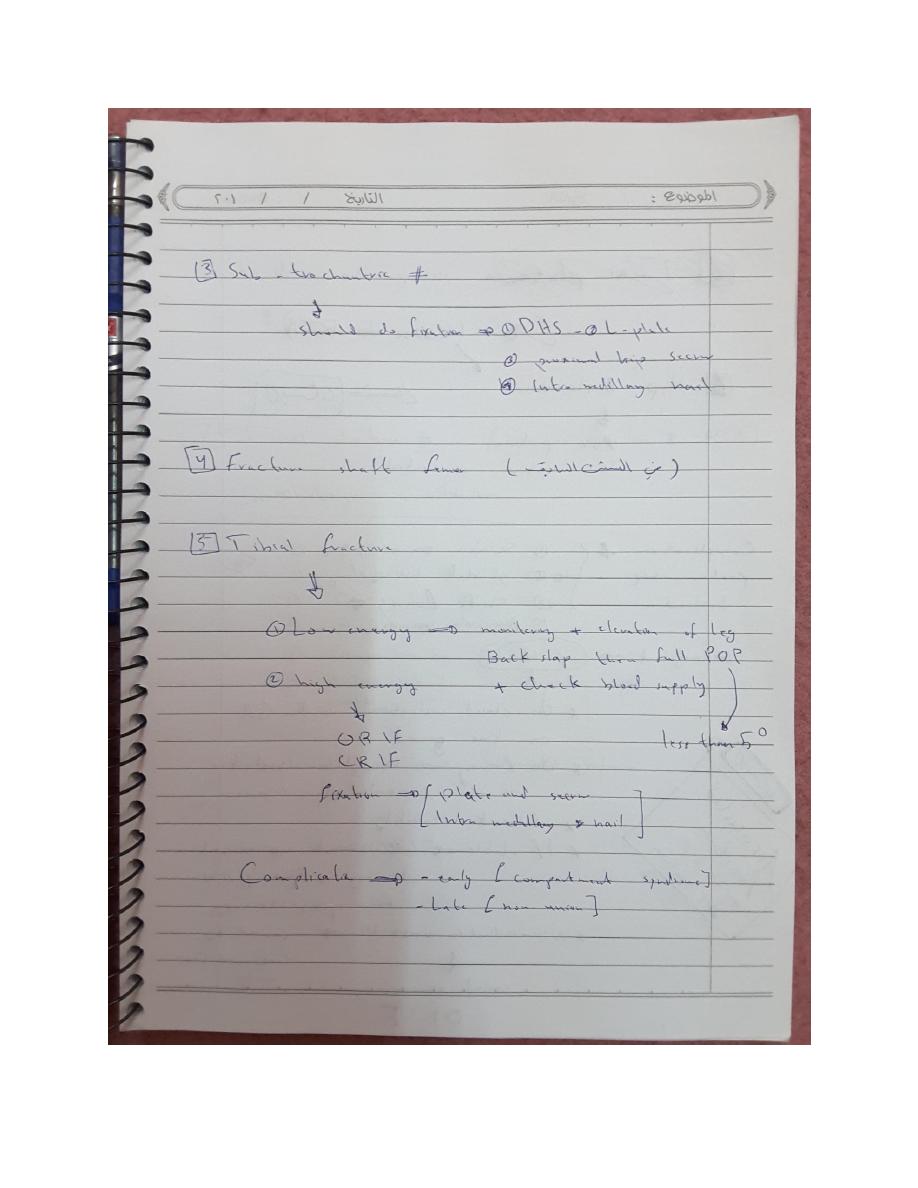 الموضوع :
التاريخ / / ٢٠١
[3] Sub-trochantric #
↓
should do fixation ⇒ ① DHS - ② L-plate
③ proximal hip screw
④ Intra medillary nail
[4] Fracture shaft femur (من السشن السابقة)
[5] Tibial fracture
⇓
① Low energy ⇒ monitoring + elevation of leg
Back slap then full POP
② high energy + check blood supply
less than 5°
ORIF
CRIF
fixation ⇒ [plate and screw
Intra medullary nail]
Complicatio ⇒ - early [compartment syndrome]
- Late [non union]